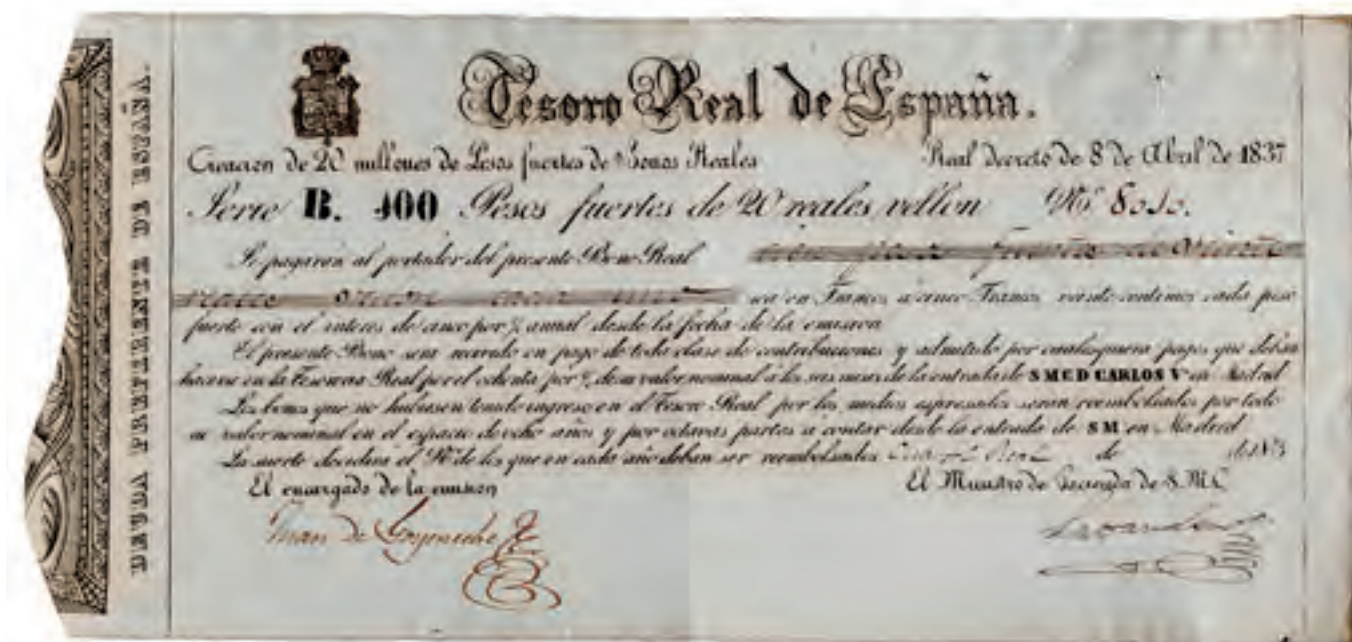 DEUDA PREFERENTE DE ESPAÑA.
Tesoro Real de España.
Creacion de 20 millones de Pesos fuertes de Bonos Reales
Real decreto de 8 de Abril de 1837
Serie B. 400 Pesos fuertes de 20 reales vellon Nº
Se pagarán al portador del presente Bono Real
sea en Francos a cinco Francos veinte centimos cada peso
fuerte con el interes de cinco por % annal desde la fecha de la emision
El presente Bono sera recivido en pago de toda clase de contribuciones y admitido por cualesquiera pagos que deban
hacerse en la Tesoreria Real por el ochenta por % de su valor nominal á los seis meses de la entrada de S M C D CARLOS Vº en Madrid
Los bonos que no hubiesen tenido ingreso en el Tesoro Real por los medios espresados seran reembolsados por todo
su valor nominal en el espacio de ocho años y por octavas partes a contar desde la entrada de S M en Madrid
La suerte decidira el Nº de los que en cada año deban ser reembolsados Real de de 183
El encargado de la emision
El Ministro de Hacienda de S. M. C.
Juan de Goyeneche